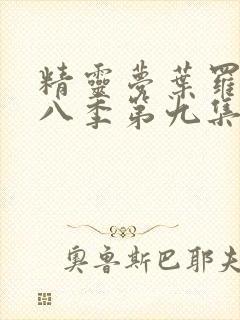 精靈夢葉羅
八季第九集
奧魯斯巴耶夫